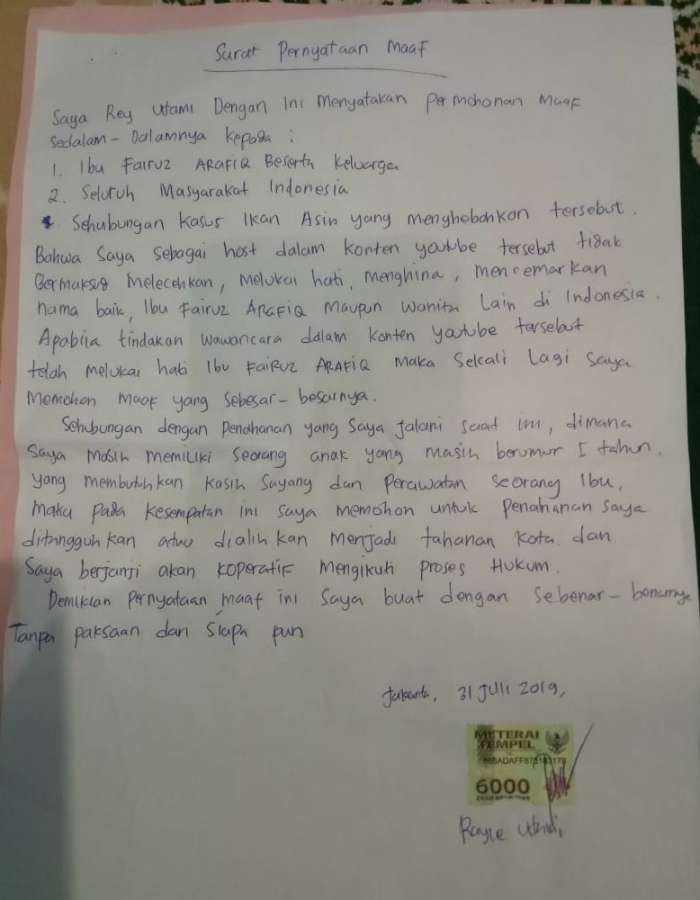 Surat Pernyataan Maaf
Saya Rey Utami Dengan Ini Menyatakan Permohonan Maaf
Sedalam-Dalamnya Kepada :
1. Ibu Fairuz ARAFIQ Beserta Keluarga
2. Seluruh Masyarakat Indonesia
Sehubungan Kasus Ikan Asin yang menghebohkan tersebut.
Bahwa Saya Sebagai host dalam Konten youtube tersebut tidak
Bermaksud Melecehkan, Melukai hati, Menghina, mencemarkan
nama baik, Ibu Fairuz ARAFIQ Maupun Wanita Lain di Indonesia.
Apabila tindakan Wawancara dalam Konten youtube tersebut
telah melukai hati Ibu FAIRUZ ARAFIQ Maka Sekali Lagi Saya
Memohon Maaf yang Sebesar-besarnya.
Sehubungan dengan Penahanan yang Saya Jalani Saat Ini, dimana
Saya Masih Memiliki Seorang anak yang masih berumur 1 tahun.
yang membutuhkan Kasih Sayang dan Perawatan Seorang Ibu,
Maka Pada Kesempatan ini Saya Memohon untuk Penahanan Saya
ditangguhkan atau dialihkan Menjadi tahanan Kota dan
Saya berjanji akan KOPERATIF Mengikuti Proses Hukum.
Demikian Pernyataan maaf ini Saya buat dengan Sebenar-benarnya
Tanpa Paksaan dari Siapa pun
Jakarta, 31 Juli 2019,
METERAI
TEMPEL
6000